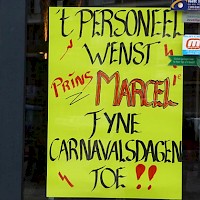 't PERSONEEL
WENST
PRINS MARCEL'
FYNE
CARNAVALSDAGEN
TOE !!